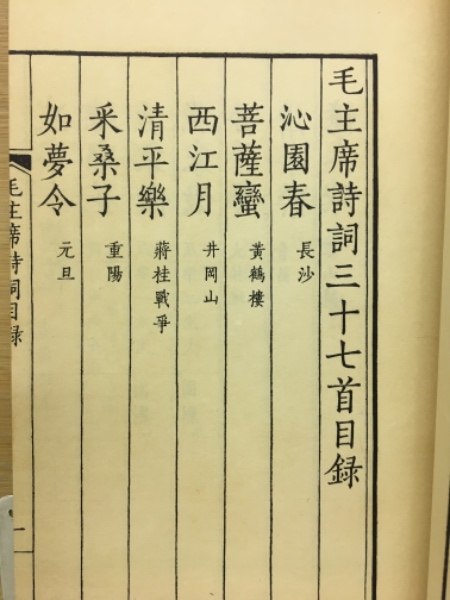 毛主席詩詞三十七首目録
沁園春 長沙
菩薩蠻 黃鶴樓
西江月 井岡山
清平樂 蔣桂戰爭
采桑子 重陽
如夢令 元旦
毛主席詩詞目録
一